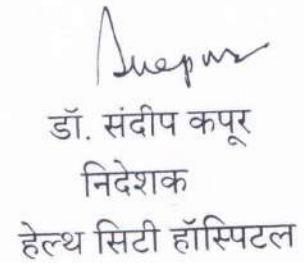 डॉ. संदीप कपूर
निदेशक
हेल्थ सिटी हॉस्पिटल